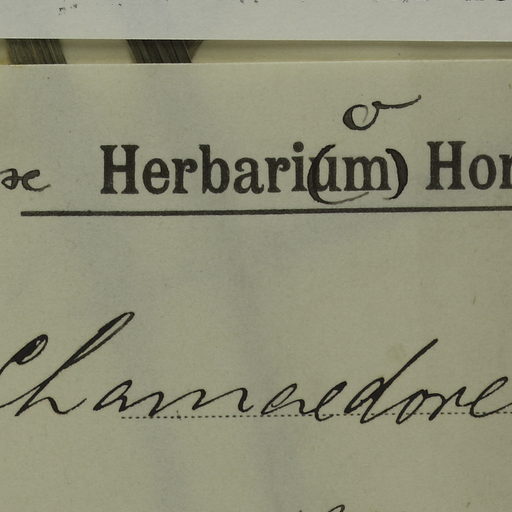 o
Herbari(um) Hor
Chamaedore